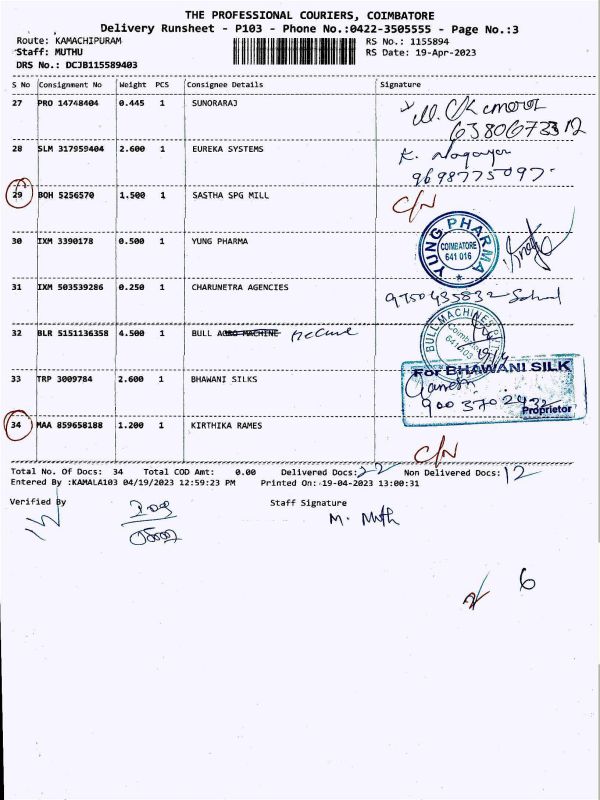 THE PROFESSIONAL COURIERS, COIMBATORE
Delivery Runsheet - P103 - Phone No.:0422-3505555 - Page No.:3
Route: KAMACHIPURAM RS No.: 1155894
Staff: MUTHU RS Date: 19-Apr-2023
DRS No.: DCJB115589403
S No Consignment No Weight PCS Consignee Details Signature
27 PRO 14748404 0.445 1 SUNORARAJ
6380673312
28 SLM 317959404 2.600 1 EUREKA SYSTEMS K. Nagayan
9698775097
29 BOH 5256570 1.500 1 SASTHA SPG MILL C/N
30 IXM 3390178 0.500 1 YUNG PHARMA YUNG PHARMA COIMBATORE 641 016
31 IXM 503539286 0.250 1 CHARUNETRA AGENCIES 9750435832
32 BLR 5151136358 4.500 1 BULL AGRO MACHINE BULL MACHINES Coimbatore
33 TRP 3009784 2.600 1 BHAWANI SILKS For BHAWANI SILK
Ganesh
Proprietor
34 MAA 859658188 1.200 1 KIRTHIKA RAMES C/N
Total No. Of Docs: 34 Total COD Amt: 0.00 Delivered Docs: 22 Non Delivered Docs: 12
Entered By :KAMALA103 04/19/2023 12:59:23 PM Printed On: 19-04-2023 13:00:31
Verified By Staff Signature
M. Muth
6